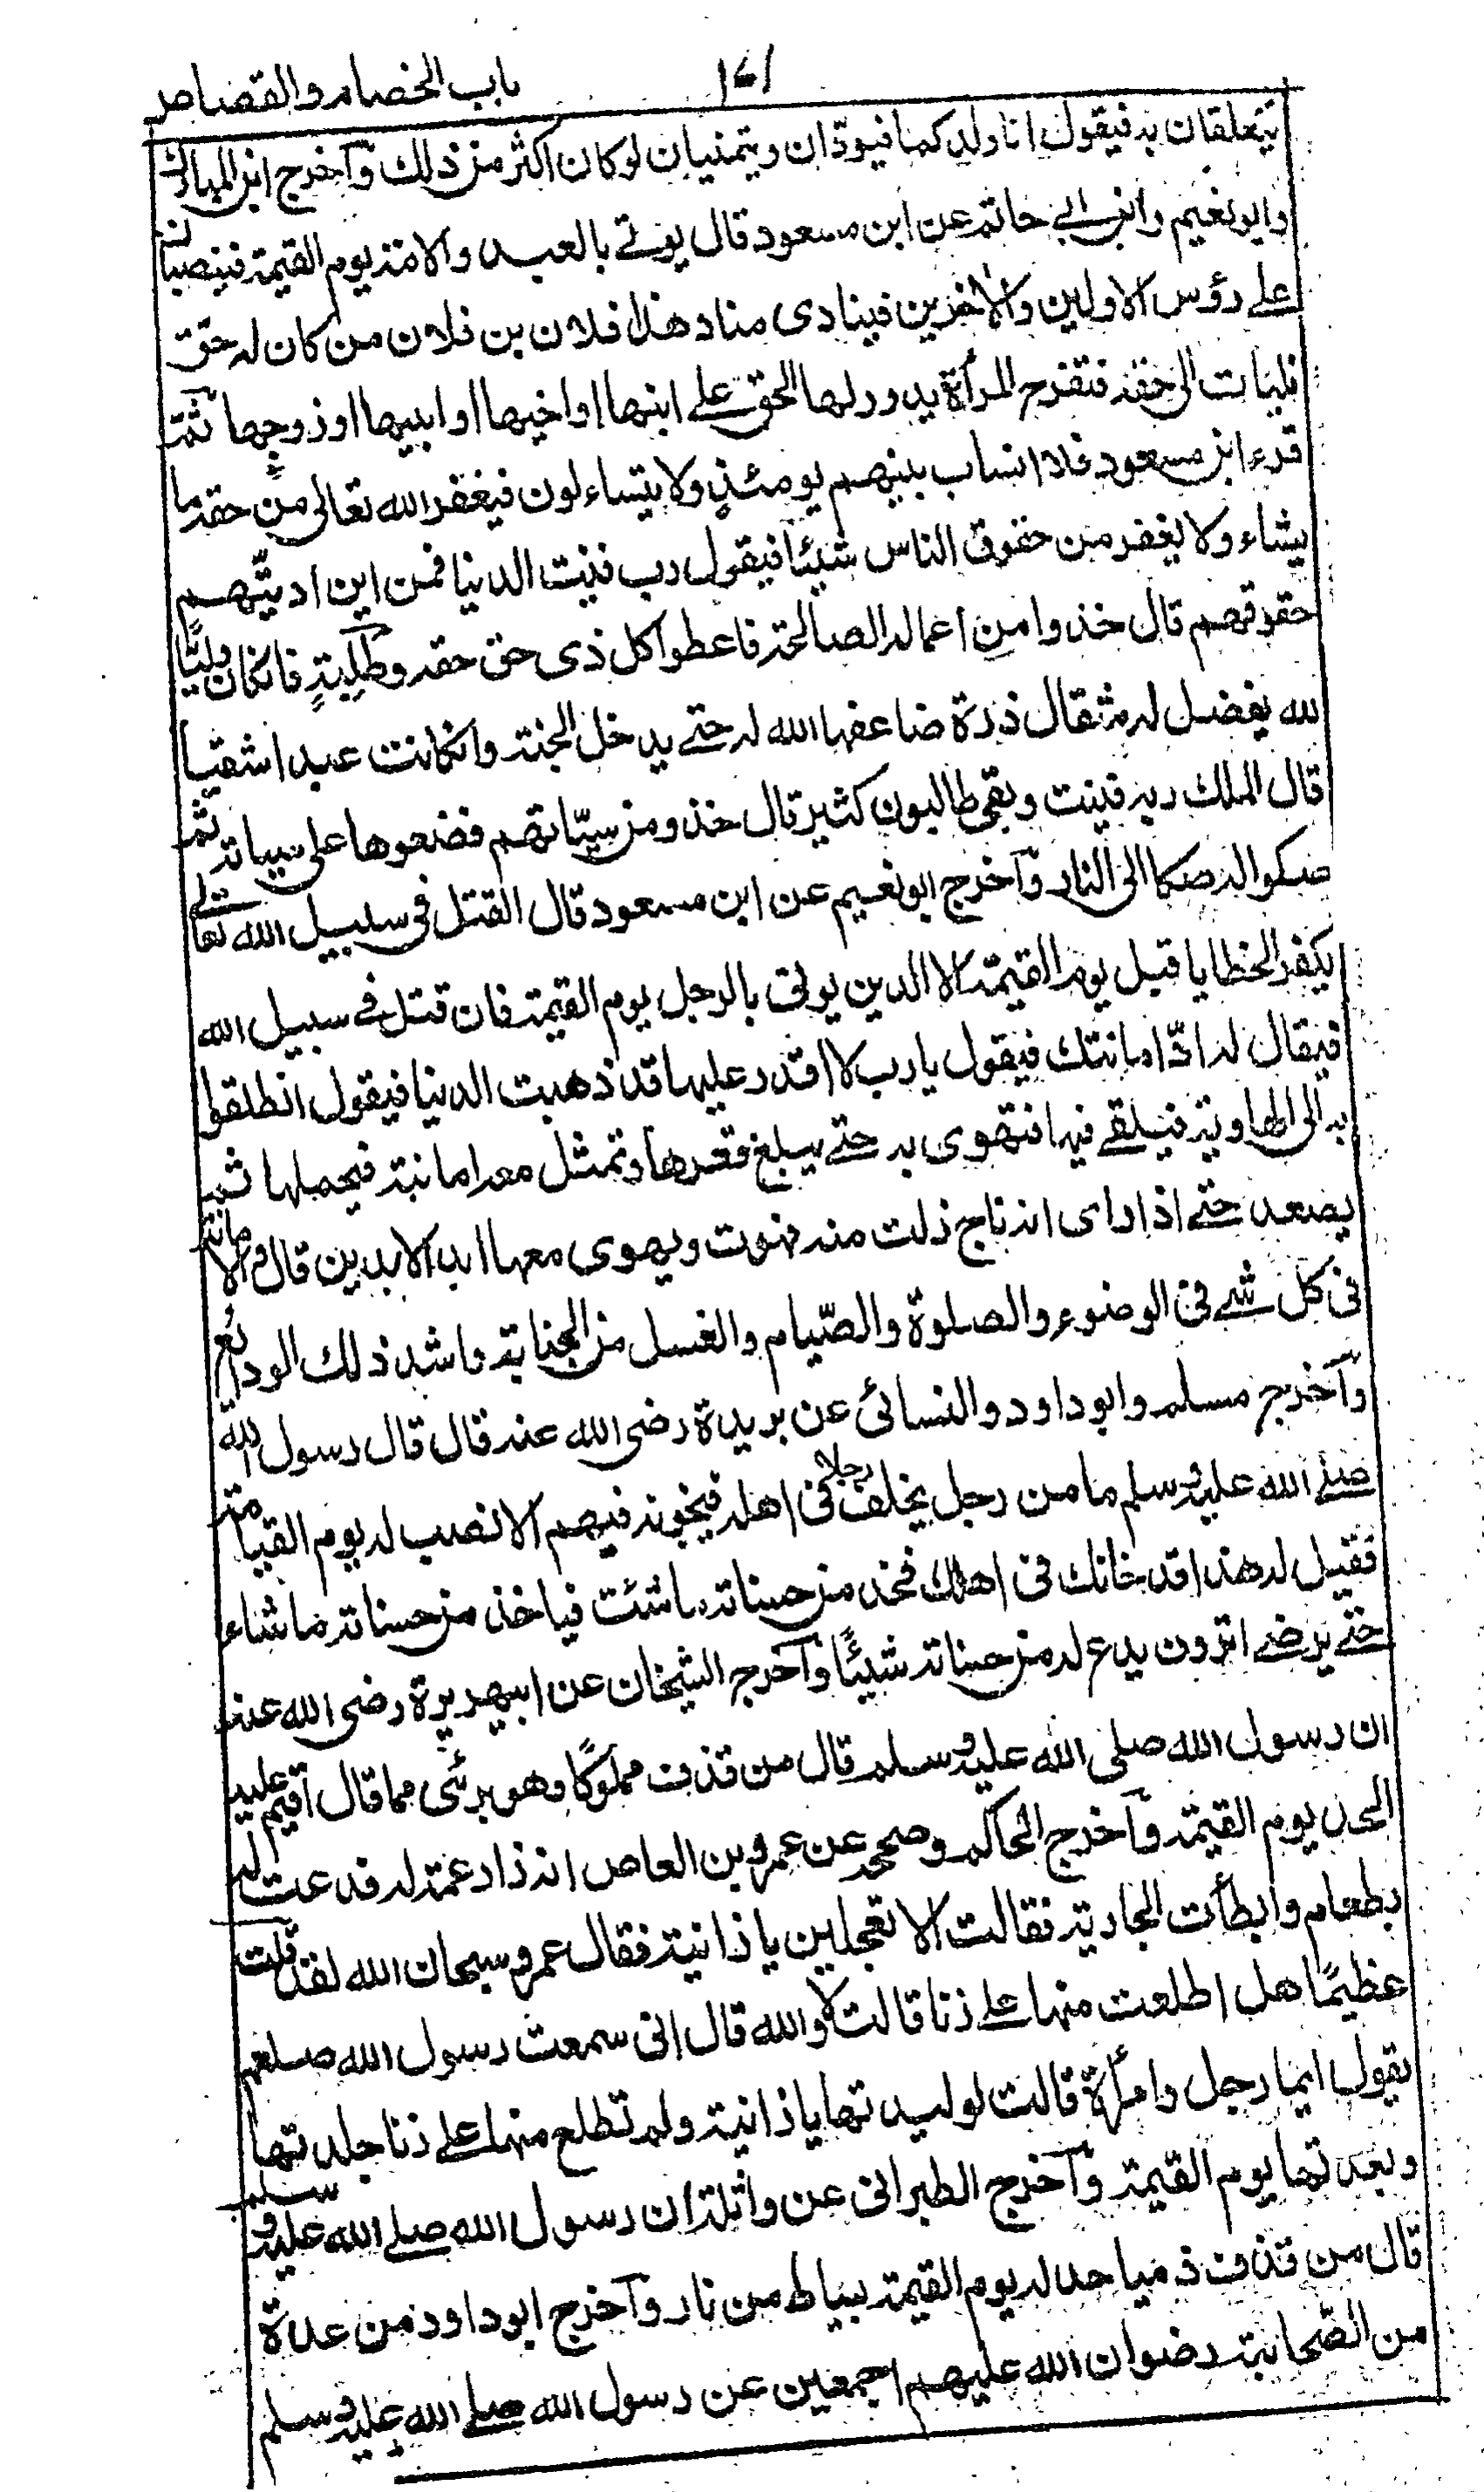 باب الخصام والقصاص
١٤١
يتعلقان به فيقول انا ولد كما فيودّان ويتمنيان لو كان اكثر من ذلك وآخرج ابن المبارك
وابو نعيم وابن ابي حاتم عن ابن مسعود قال يوتے بالعبد والامة يوم القيمة فينصبان
علے رؤس الاولين والاخرين فينادى مناد هذا فلان بن فلان من كان له حق
فليات الى حقه فتفرح المرأة يدور لها الحق علے ابنها او اخيها او ابيها او زوجها ثمّ
قرء ابن مسعود فلا انساب بينهم يومئذٍ ولا يتساءلون فيغفر الله تعالى من حقه ما
يشاء ولا يغفر من حقوق الناس شيئا فيقول رب فنيت الدنيا فمن اين اوتيّهم
حقوقهم قال خذوا من اعماله الصالحة فاعطوا كل ذى حق حقه وطلبتهٖ فانكان وليًّا
لله يفضل له مثقال ذرة ضاعفها الله له حتے يدخل الجنة وانكانت عبدا شقيا
قال الملك ربه فينيت وبقى طالبون كثير قال خذو من سيّاتهم فضعوها على سياته ثم
صكوا له صكا الى النار وآخرج ابو نعيم عن ابن مسعود قال القتل فى سبيل الله تعالے
يكفر الخطايا قبل يوم القيمة الا الدين يوتى بالرجل يوم القيمة فان قتل فے سبيل الله
فيقال له ادّ امانتك فيقول يا رب لا اقدر عليها قد ذهبت الدنيا فيقول انطلقوا
به الى الهاوية فيلقے فيها فتهوى به حتے يبلغ قعرها وتمثل معه امانته فيحملها ثم
يصعد حتے اذا راى انه ناج زلت منه فهوت ويهوى معها ابد الابدين قال والامانة
فى كل شے فى الوضوء والصلوة والصّيام والغسل من الجنابة واشد ذلك الودائع
وآخرج مسلم وابو داود والنسائى عن بريدة رضى الله عنه قال قال رسول الله
صلے الله عليه وسلم ما من رجل يخلف رجلا فى اهله فيخونه فيهم الا نصب له يوم القيامة
فقيل له هذا قد خانك فى اهلك فخذ من حسناته ما شئت فياخذ من حسناته ما شاء
حتے يرضے اترون يدع له من حسناته شيئًا وآخرج الشيخان عن ابيهريرة رضى الله عنه
ان رسول الله صلى الله عليه وسلم قال من قذف مملوكًا وهو برئى مما قال اقيم عليه
الحد يوم القيمة وآخرج الحاكم وصححه عن عمرو بن العاص انه زار عمة له فدعت له
بطعام وابطأت الجارية فقالت الا تعجلين يا زانية فقال عمرو سبحان الله لقد قلت
عظيمًا هل اطلعت منها علے زنا قالت لا والله قال انى سمعت رسول الله صلعم
يقول ايما رجل وامرأة قالت لوليدتها يا زانية ولم تطلع منها علے زنا جلدتها
وبعدتها يوم القيمة وآخرج الطبرانى عن واثلة ان رسول الله صلے الله عليه وسلم
قال من قذف ذميا حد له يوم القيمة بسياط من نار وآخرج ابو داود من عدة
من الصّحابة رضوان الله عليهم اجمعين عن رسول الله صلے الله عليه وسلم